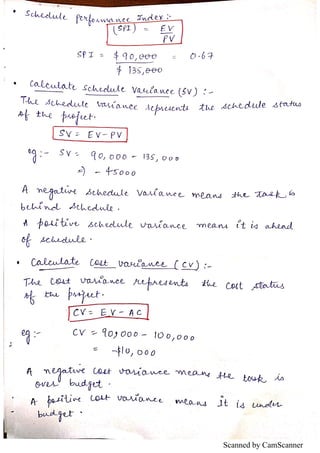 • Schedule Performance Index :-
(SPI) = EV / PV
SPI = $ 90,000 / $ 135,000 = 0.67
• Calculate Schedule Variance (SV) :-
The schedule variance represents the schedule status
of the project.
SV = EV - PV
eg:- SV = 90,000 - 135,000
=) - 45000
A negative schedule variance means the task is
behind schedule.
A positive schedule variance means it is ahead
of schedule.
• Calculate cost variance (CV) :-
The cost variance represents the cost status
of the project.
CV = EV - AC
eg:- CV = 90,000 - 100,000
= -$10,000
A negative cost variance means the task is
over budget.
A positive cost variance means it is under
budget.
Scanned by CamScanner